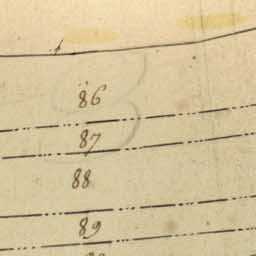 86
87
88
89